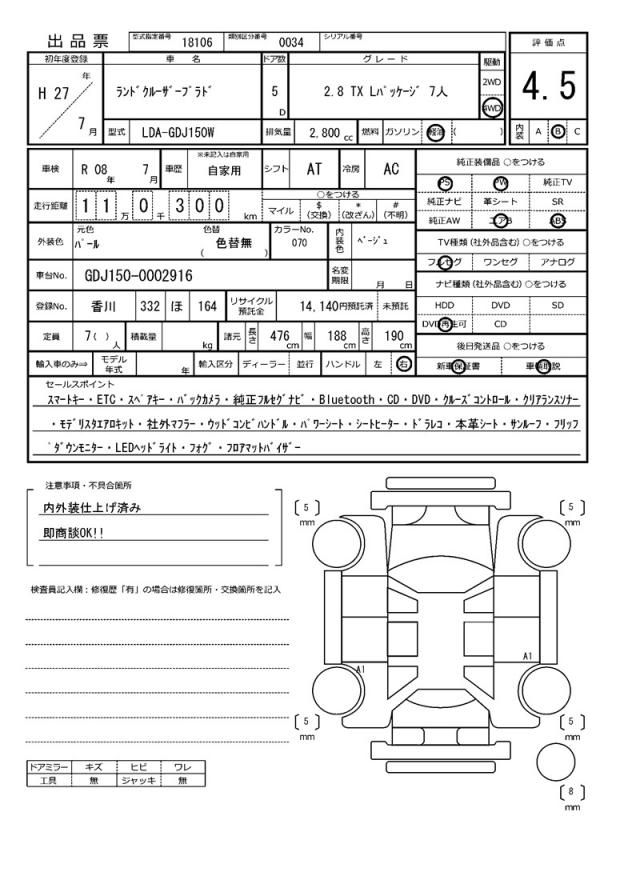 出品票 型式指定番号 18106 類別区分番号 0034 シリアル番号
評価点
4.5
内装 A B C
初年度登録 車名 ドア数 グレード 駆動
H 27 年 7 月
ランドクルーザープラド 5 D 2.8 TX Lパッケージ 7人 2WD 4WD
型式 LDA-GDJ150W 排気量 2,800 cc 燃料 ガソリン 軽油 ( )
車検 R 08 年 7 月 車歴 ※未記入は自家用 自家用 シフト AT 冷房 AC
走行距離 1 1 万 0 千 3 0 0 km
○をつける
マイル $ (交換) * (改ざん) # (不明)
外装色 元色 パール 色替 ( 色替無 ) カラーNo. 070 内装色 ベージュ
車台No. GDJ150-0002916 名変期限 月 日
登録No. 香川 332 ほ 164 リサイクル預託金 14,140円預託済 未預託
定員 7( ) 人 積載量 kg 諸元 長さ 476 cm 幅 188 cm 高さ 190 cm
輸入車のみ⇒ モデル年式 年 輸入区分 ディーラー 並行 ハンドル 左 右
純正装備品 ○をつける
PS PW 純正TV
純正ナビ 革シート SR
純正AW エアB ABS
TV種類(社外品含む) ○をつける
フルセグ ワンセグ アナログ
ナビ種類(社外品含む) ○をつける
HDD DVD SD
DVD再生可 CD
後日発送品 ○をつける
新車保証書 車輌取説
セールスポイント
スマートキー・ETC・スペアキー・バックカメラ・純正フルセグナビ・Bluetooth・CD・DVD・クルーズコントロール・クリアランスソナー
・モデリスタエアロキット・社外マフラー・ウッドコンビハンドル・パワーシート・シートヒーター・ドラレコ・本革シート・サンルーフ・フリップ
ダウンモニター・LEDヘッドライト・フォグ・フロアマットバイザー
注意事項・不具合箇所
内外装仕上げ済み
即商談OK!!
検査員記入欄：修復歴「有」の場合は修復箇所・交換箇所を記入
ドアミラー キズ ヒビ ワレ
工具 無 ジャッキ 無
[5] mm
[5] mm
A1
A1
[5] mm
[5] mm
[8] mm